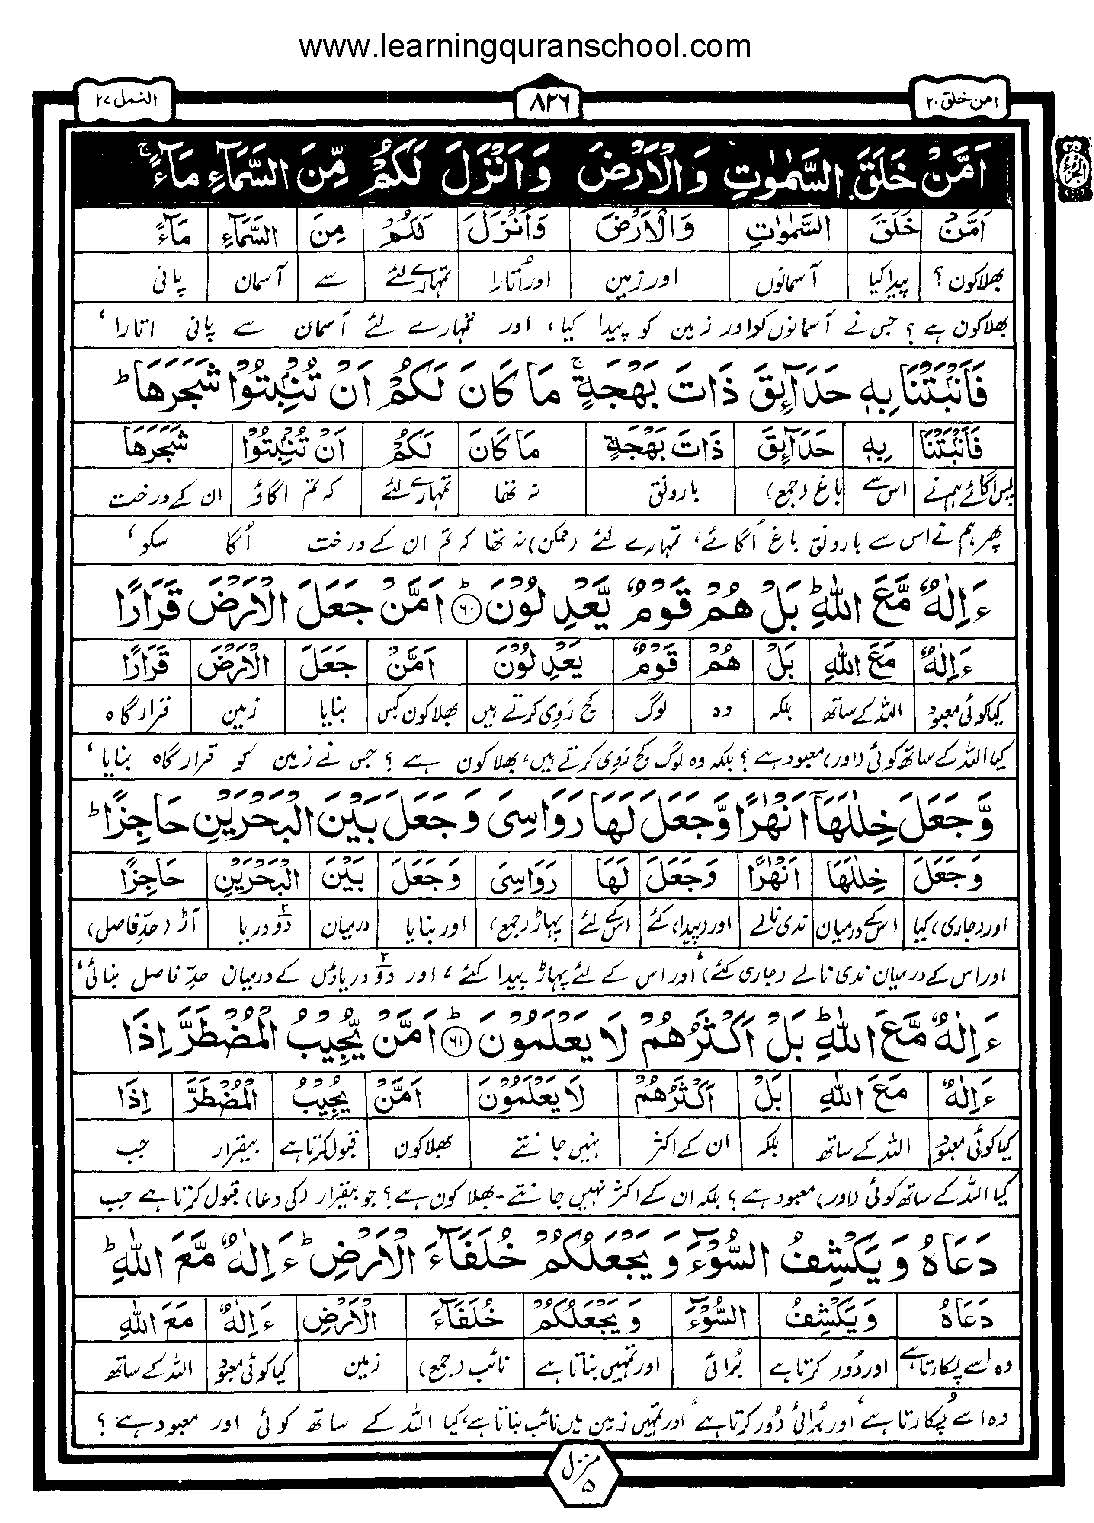 www.learningquranschool.com
امن خلق ۲۰ ۸۲۶ النمل ۲۷
اَمَّنْ خَلَقَ السَّمٰوٰتِ وَالْاَرْضَ وَاَنْزَلَ لَكُمْ مِّنَ السَّمَآءِ مَآءً ۚ
اَمَّنْ خَلَقَ السَّمٰوٰتِ وَالْاَرْضَ وَاَنْزَلَ لَكُمْ مِنَ السَّمَآءِ مَآءً
بھلا کون ؟ پیدا کیا آسمانوں اور زمین اور اُتارا تمہارے لئے سے آسمان پانی
بھلا کون ہے ؟ جس نے آسمانوں کو اور زمین کو پیدا کیا، اور تمہارے لئے آسمان سے پانی اتارا ،
فَاَنْۢبَتْنَا بِهٖ حَدَآئِقَ ذَاتَ بَهْجَةٍ ۚ مَا كَانَ لَكُمْ اَنْ تُنْۢبِتُوْا شَجَرَهَا ؕ
فَاَنْۢبَتْنَا بِهٖ حَدَآئِقَ ذَاتَ بَهْجَةٍ مَا كَانَ لَكُمْ اَنْ تُنْۢبِتُوْا شَجَرَهَا
پس اُگائے ہم نے اس سے باغ (جمع) بارونق نہ تھا تمہارے لئے کہ تم اگاؤ ان کے درخت
پھر ہم نے اس سے بارونق باغ اُگائے، تمہارے لئے (ممکن) نہ تھا کہ تم ان کے درخت اُگا سکو ،
ءَاِلٰهٌ مَّعَ اللّٰهِ ؕ بَلْ هُمْ قَوْمٌ يَّعْدِلُوْنَ ؕ۶۰ اَمَّنْ جَعَلَ الْاَرْضَ قَرَارًا
ءَاِلٰهٌ مَعَ اللّٰهِ بَلْ هُمْ قَوْمٌ يَعْدِلُوْنَ اَمَّنْ جَعَلَ الْاَرْضَ قَرَارًا
کیا کوئی معبود اللہ کے ساتھ بلکہ وہ لوگ کج روی کرتے ہیں بھلا کون کس بنایا زمین قرار گاہ
کیا اللہ کے ساتھ کوئی (اور) معبود ہے ؟ بلکہ وہ لوگ کج روی کرتے ہیں، بھلا کون ہے ؟ جس نے زمین کو قرار گاہ بنایا ،
وَّجَعَلَ خِلٰلَهَآ اَنْهٰرًا وَّجَعَلَ لَهَا رَوَاسِىَ وَجَعَلَ بَيْنَ الْبَحْرَيْنِ حَاجِزًا ؕ
وَجَعَلَ خِلٰلَهَا اَنْهٰرًا وَجَعَلَ لَهَا رَوَاسِىَ وَجَعَلَ بَيْنَ الْبَحْرَيْنِ حَاجِزًا
اور (جاری) کیا اس کے درمیان ندی نالے اور (پیدا) کئے اس کے لئے پہاڑ (جمع) اور بنایا درمیان دو دریا آڑ (حدِ فاصل)
اور اس کے درمیان ندی نالے (جاری کئے) اور اس کے لئے پہاڑ پیدا کئے ، اور دو دریاؤں کے درمیان حدِ فاصل بنائی ،
ءَاِلٰهٌ مَّعَ اللّٰهِ ؕ بَلْ اَكْثَرُهُمْ لَا يَعْلَمُوْنَ ؕ۶۱ اَمَّنْ يُّجِيْبُ الْمُضْطَرَّ اِذَا
ءَاِلٰهٌ مَعَ اللّٰهِ بَلْ اَكْثَرُهُمْ لَا يَعْلَمُوْنَ اَمَّنْ يُجِيْبُ الْمُضْطَرَّ اِذَا
کیا کوئی معبود اللہ کے ساتھ بلکہ ان کے اکثر نہیں جانتے بھلا کون قبول کرتا ہے بیقرار جب
کیا اللہ کے ساتھ کوئی (اور) معبود ہے ؟ بلکہ ان کے اکثر نہیں جانتے۔ بھلا کون ہے ؟ جو بیقرار (کی دعا) قبول کرتا ہے جب
دَعَاهُ وَيَكْشِفُ السُّوْٓءَ وَيَجْعَلُكُمْ خُلَفَآءَ الْاَرْضِ ؕ ءَاِلٰهٌ مَّعَ اللّٰهِ ؕ
دَعَاهُ وَيَكْشِفُ السُّوْٓءَ وَيَجْعَلُكُمْ خُلَفَآءَ الْاَرْضِ ءَاِلٰهٌ مَعَ اللّٰهِ
وہ اسے پکارتا ہے اور دُور کرتا ہے بُرائی اور تمہیں بناتا ہے نائب (جمع) زمین کیا کوئی معبود اللہ کے ساتھ
وہ اسے پُکارتا ہے، اور بُرائی دُور کرتا ہے، اور تمہیں زمین میں نائب بناتا ہے، کیا اللہ کے ساتھ کوئی اور معبود ہے ؟
منزل ۵